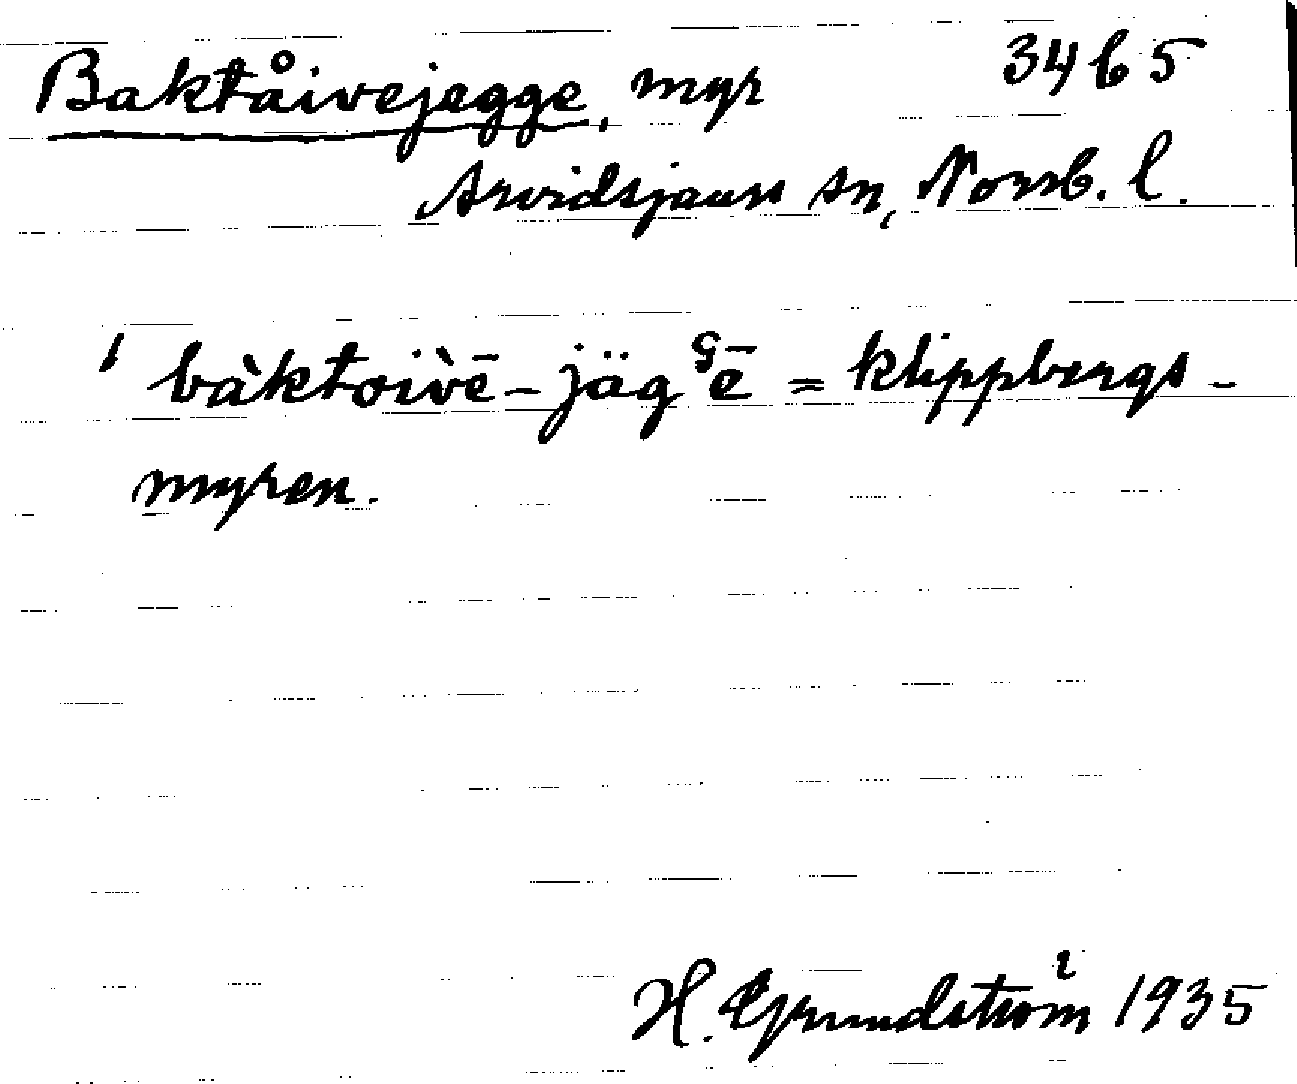 Baktåivejegge, myr 3465
Arvidsjaurs sn, Norrb. l.
ˈbàktoìvē-jäg ᶢē = klippbergs-
myren.
H. Grundström 1935